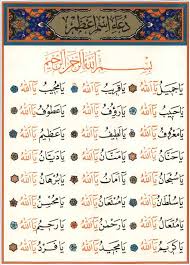 دعاء اسم اعظم
بسم الله الرحمن الرحيم
يَا جَمِيلُ يَا اَللهُ يَا قَرِيبُ يَا اَللهُ يَا مُجِيبُ يَا اَللهُ
يَا حَبِيبُ يَا اَللهُ يَا رَؤُفُ يَا اَللهُ يَا عَطُوفُ يَا اَللهُ
يَا مَعْرُوفُ يَا اَللهُ يَا لَطِيفُ يَا اَللهُ يَا عَظِيمُ يَا اَللهُ
يَا حَنَّانُ يَا اَللهُ يَا مَنَّانُ يَا اَللهُ يَا دَيَّانُ يَا اَللهُ
يَا سُبْحَانُ يَا اَللهُ يَا اَمَانُ يَا اَللهُ يَا بُرْهَانُ يَا اَللهُ
يَا سُلْطَانُ يَا اَللهُ يَا مُسْتَعَانُ يَا اَللهُ يَا مُحْسِنُ يَا اَللهُ
يَا مُتَعَالُ يَا اَللهُ يَا رَحْمٰنُ يَا اَللهُ يَا رَحِيمُ يَا اَللهُ
يَا كَرِيمُ يَا اَللهُ يَا مَجِيدُ يَا اَللهُ يَا فَرْدُ يَا اَللهُ